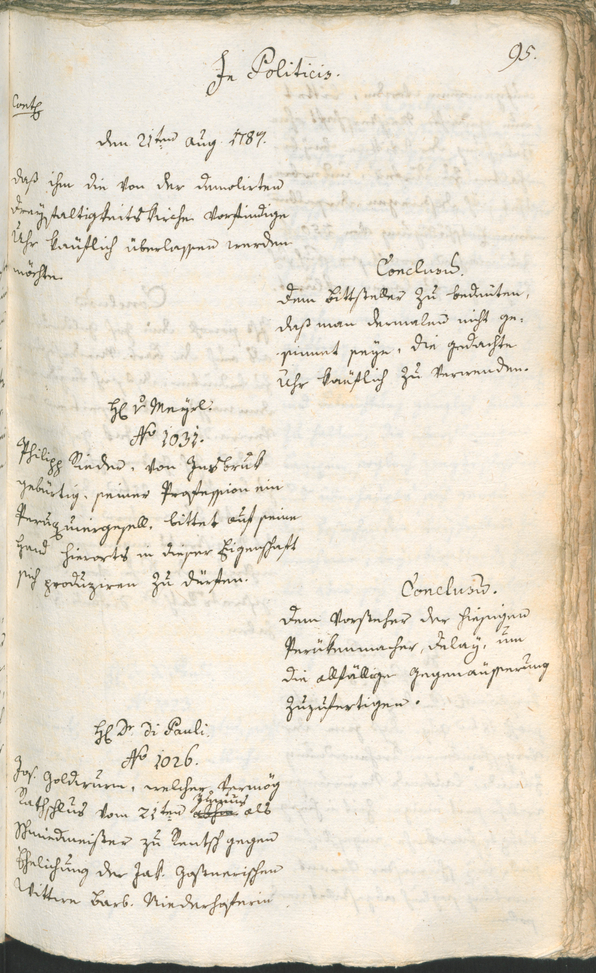 95.
In Politicis.
den 21ten Aug. 1787.
daß ihm die von der demolirten
Dreyfaltigkeitskirche vorfindige
Uhr käuflich überlassen werden
möchte.
Conclusum.
Dem Bittsteller zu bedeuten,
daß man dermalen nicht ge-
sinnet seye, die gedachte
Uhr käuflich zu verwenden.
H. v. Mayrl.
No 1031.
Philipp Rieder, von Insbruk
gebürtig, seiner Profession ein
Peruquiergesell, bittet auf seine
Hand hierorts in dieser Eigenschaft
sich produziren zu dürfen.
Conclusum.
Dem Vorsteher der hiesigen
Perükenmacher, Delay, um
die allfällige Gegenäusserung
zuzufertigen.
H. Dr. Di Pauli.
No 1026.
Jos. Goldrurn, welcher vermög
Rathschlus vom 21ten als
Schmiedmeister zu Rentsch gegen
Ehelichung der Jak. Gostnerischen
Wittwe Barb. Niederhoferin